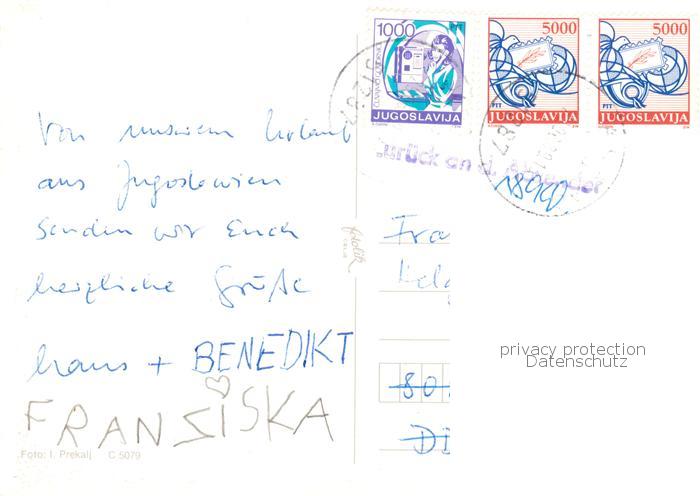 1000 PTT
JUGOSLAVIJA
5000
PTT
JUGOSLAVIJA
5000
PTT
JUGOSLAVIJA
urück an d. Absender
Von unserem Urlaub
aus Jugoslawien
senden wir Euch
herzliche Grüße
Hans + BENEDIKT
FRANZISKA
Foto: I. Prekalj C 5079
Fra
Helg
80
D
privacy protection
Datenschutz